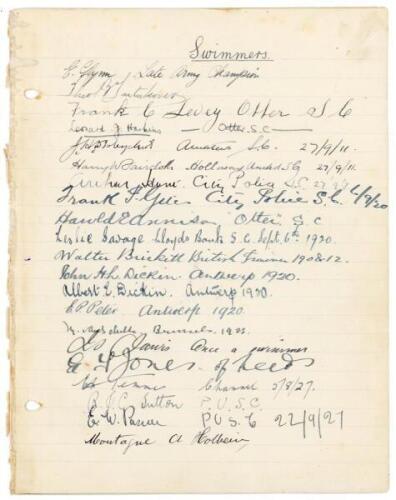 Swimmers.
E. Glynn, Late Army Champion
Theo
Frank C Levey Otter S C
Leonard J. Harkins — Otter. S.C —
Amateur S.C. 27/9/11.
Harry W Holloway United S C 27.9.11.
Arthur City Police S.C. 27
Frank City Police S.C. 6/9/20
Harold E Annison "Otter" S C
Leslie Savage Lloyds Bank S.C. Sept. 6th 1920.
Walter Brickett British Trainer 1908-12.
John H. L. Dickin. Antwerp 1920.
Albert E. Dickin. Antwerp 1920.
E P Peter Antwerp 1920.
Brussels 1922.
Jarvis Once a swimmer
Jones of Leeds
Temme Channel 5/8/27.
Sutton P.U.S.C.
E. W. P U S C 22/9/27
Montague A Holbein